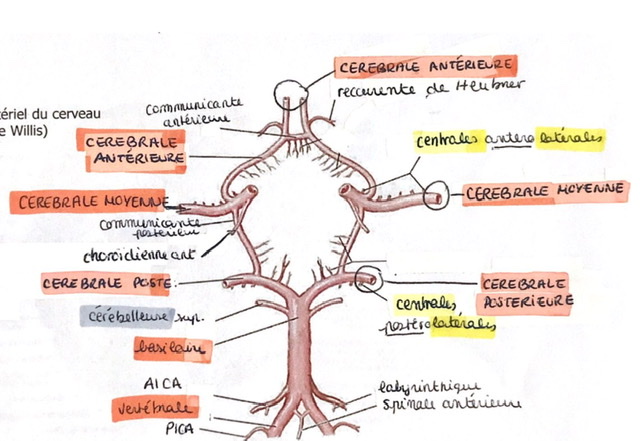 CEREBRALE ANTÉRIEURE
reccurente de Heubner
ériel du cerveau
e Willis)
communicante
antérieure
CEREBRALE
ANTÉRIEURE
centrales antero latérales
CEREBRALE MOYENNE
CEREBRALE MOYENNE
communicante
posterieur
choroïdienne ant
CEREBRALE POSTE.
CEREBRALE
POSTERIEURE
cérébelleuse sup.
centrales
postero latérales
basilaire
AICA
vertébrale
PICA
labyrinthique
spinale antérieure